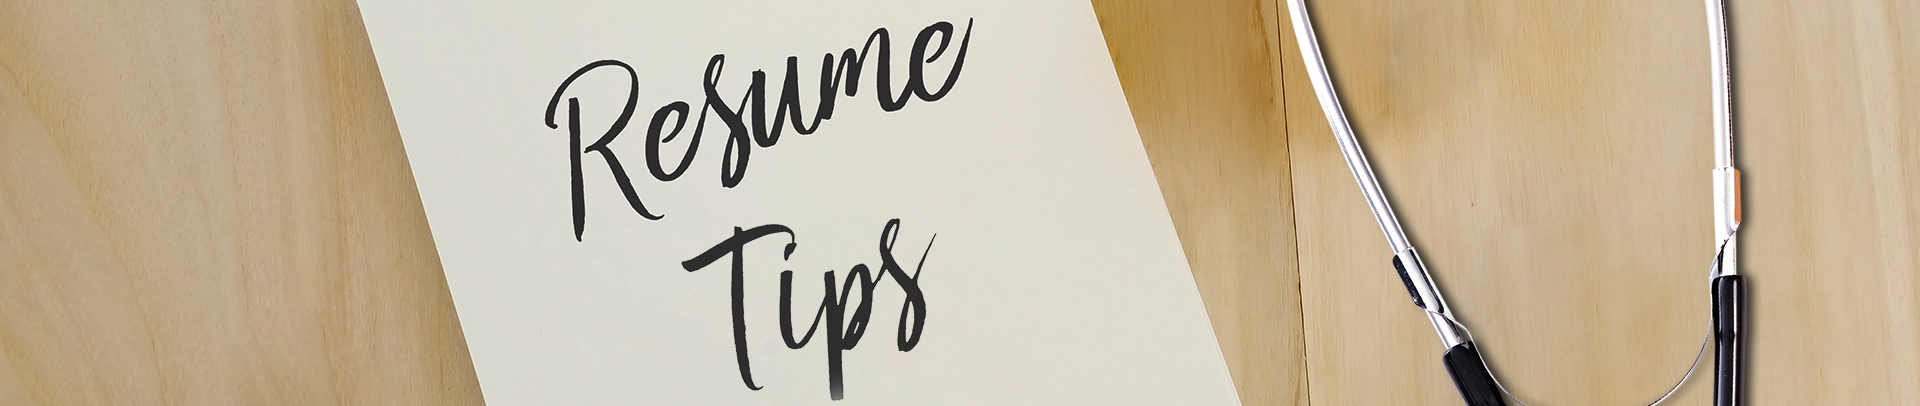 Resume
Tips